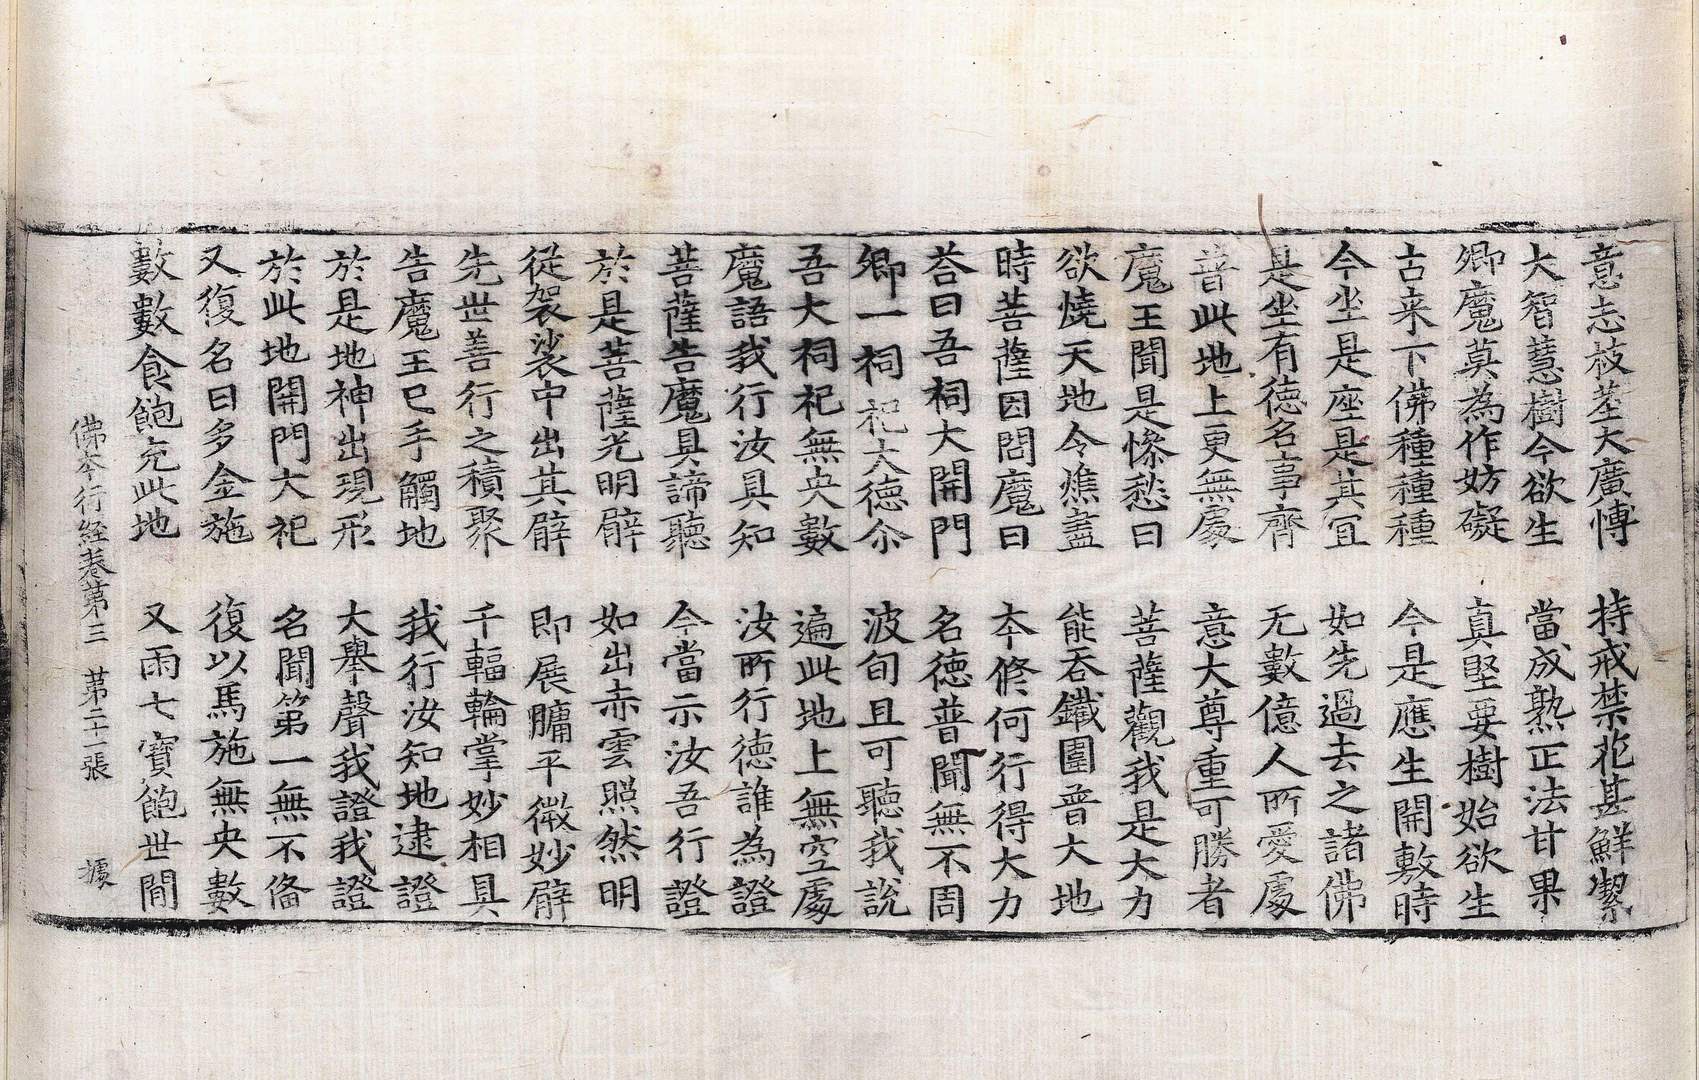 意志枝莖大廣愽　持戒禁花甚鮮潔
大智慧樹今欲生　當成熟正法甘果
卿魔莫為作妨礙　真堅要樹始欲生
古来下佛種種種　今是應生開敷時
今坐是座是其冝　如先過去之諸佛
是坐有德名事齊　无數億人所愛處
普此地上更無處　意大尊重可勝者
魔王聞是慘愁曰　菩薩觀我是大力
欲燒天地令燋盡　能吞鐵圍普大地
時菩薩因問魔曰　本修何行得大力
荅曰吾祠大開門　名德普聞無不周
卿一祠祀大德尒　波旬且可聽我說
吾大祠祀無央數　遍此地上無空處
魔語我行汝具知　汝所行德誰為證
菩薩告魔具諦聽　今當示汝吾行證
於是菩薩光明臂　如出赤雲照然明
從袈裟中出其臂　即展𦟛平微妙臂
先世善行之積聚　千輻輪掌妙相具
告魔王已手觸地　我行汝知地逮證
於是地神出現形　大舉聲我證我證
於此地開門大祀　名聞第一無不俻
又復名曰多金施　復以馬施無央數
數數食飽充此地　又雨七寶飽世間
佛本行経卷第三　第二十一張　據